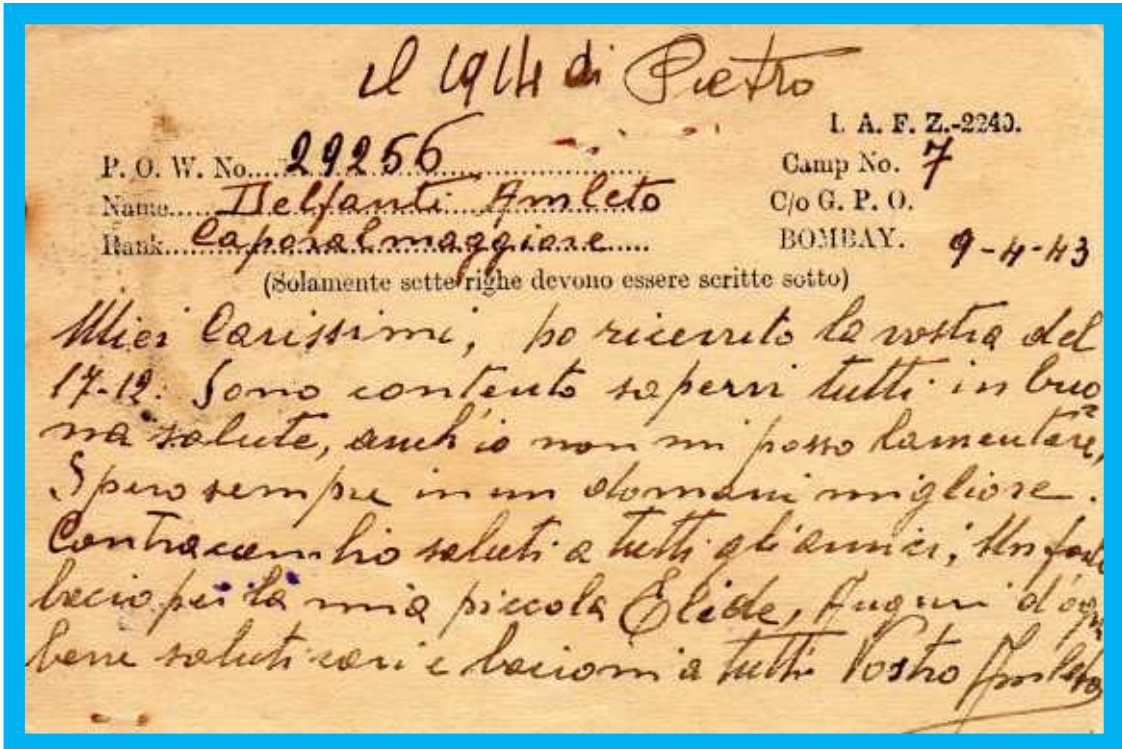 il 1914 di Pietro
I. A. F. Z.-2240.
P. O. W. No. 29256
Camp No. 7
Name Delfanti Amleto
C/o G. P. O.
Rank Caporalmaggiore
BOMBAY. 9-4-43
(Solamente sette righe devono essere scritte sotto)
Miei Carissimi, ho ricevuto la vostra del
17-12. Sono contento sapervi tutti in buo
na salute, anch'io non mi posso lamentare,
Spero sempre in un domani migliore.
Contracambio saluti a tutti gli amici, Un forte
bacio per la mia piccola Elide, Auguri d'ogni
bene saluti cari e bacioni a tutti Vostro Amleto